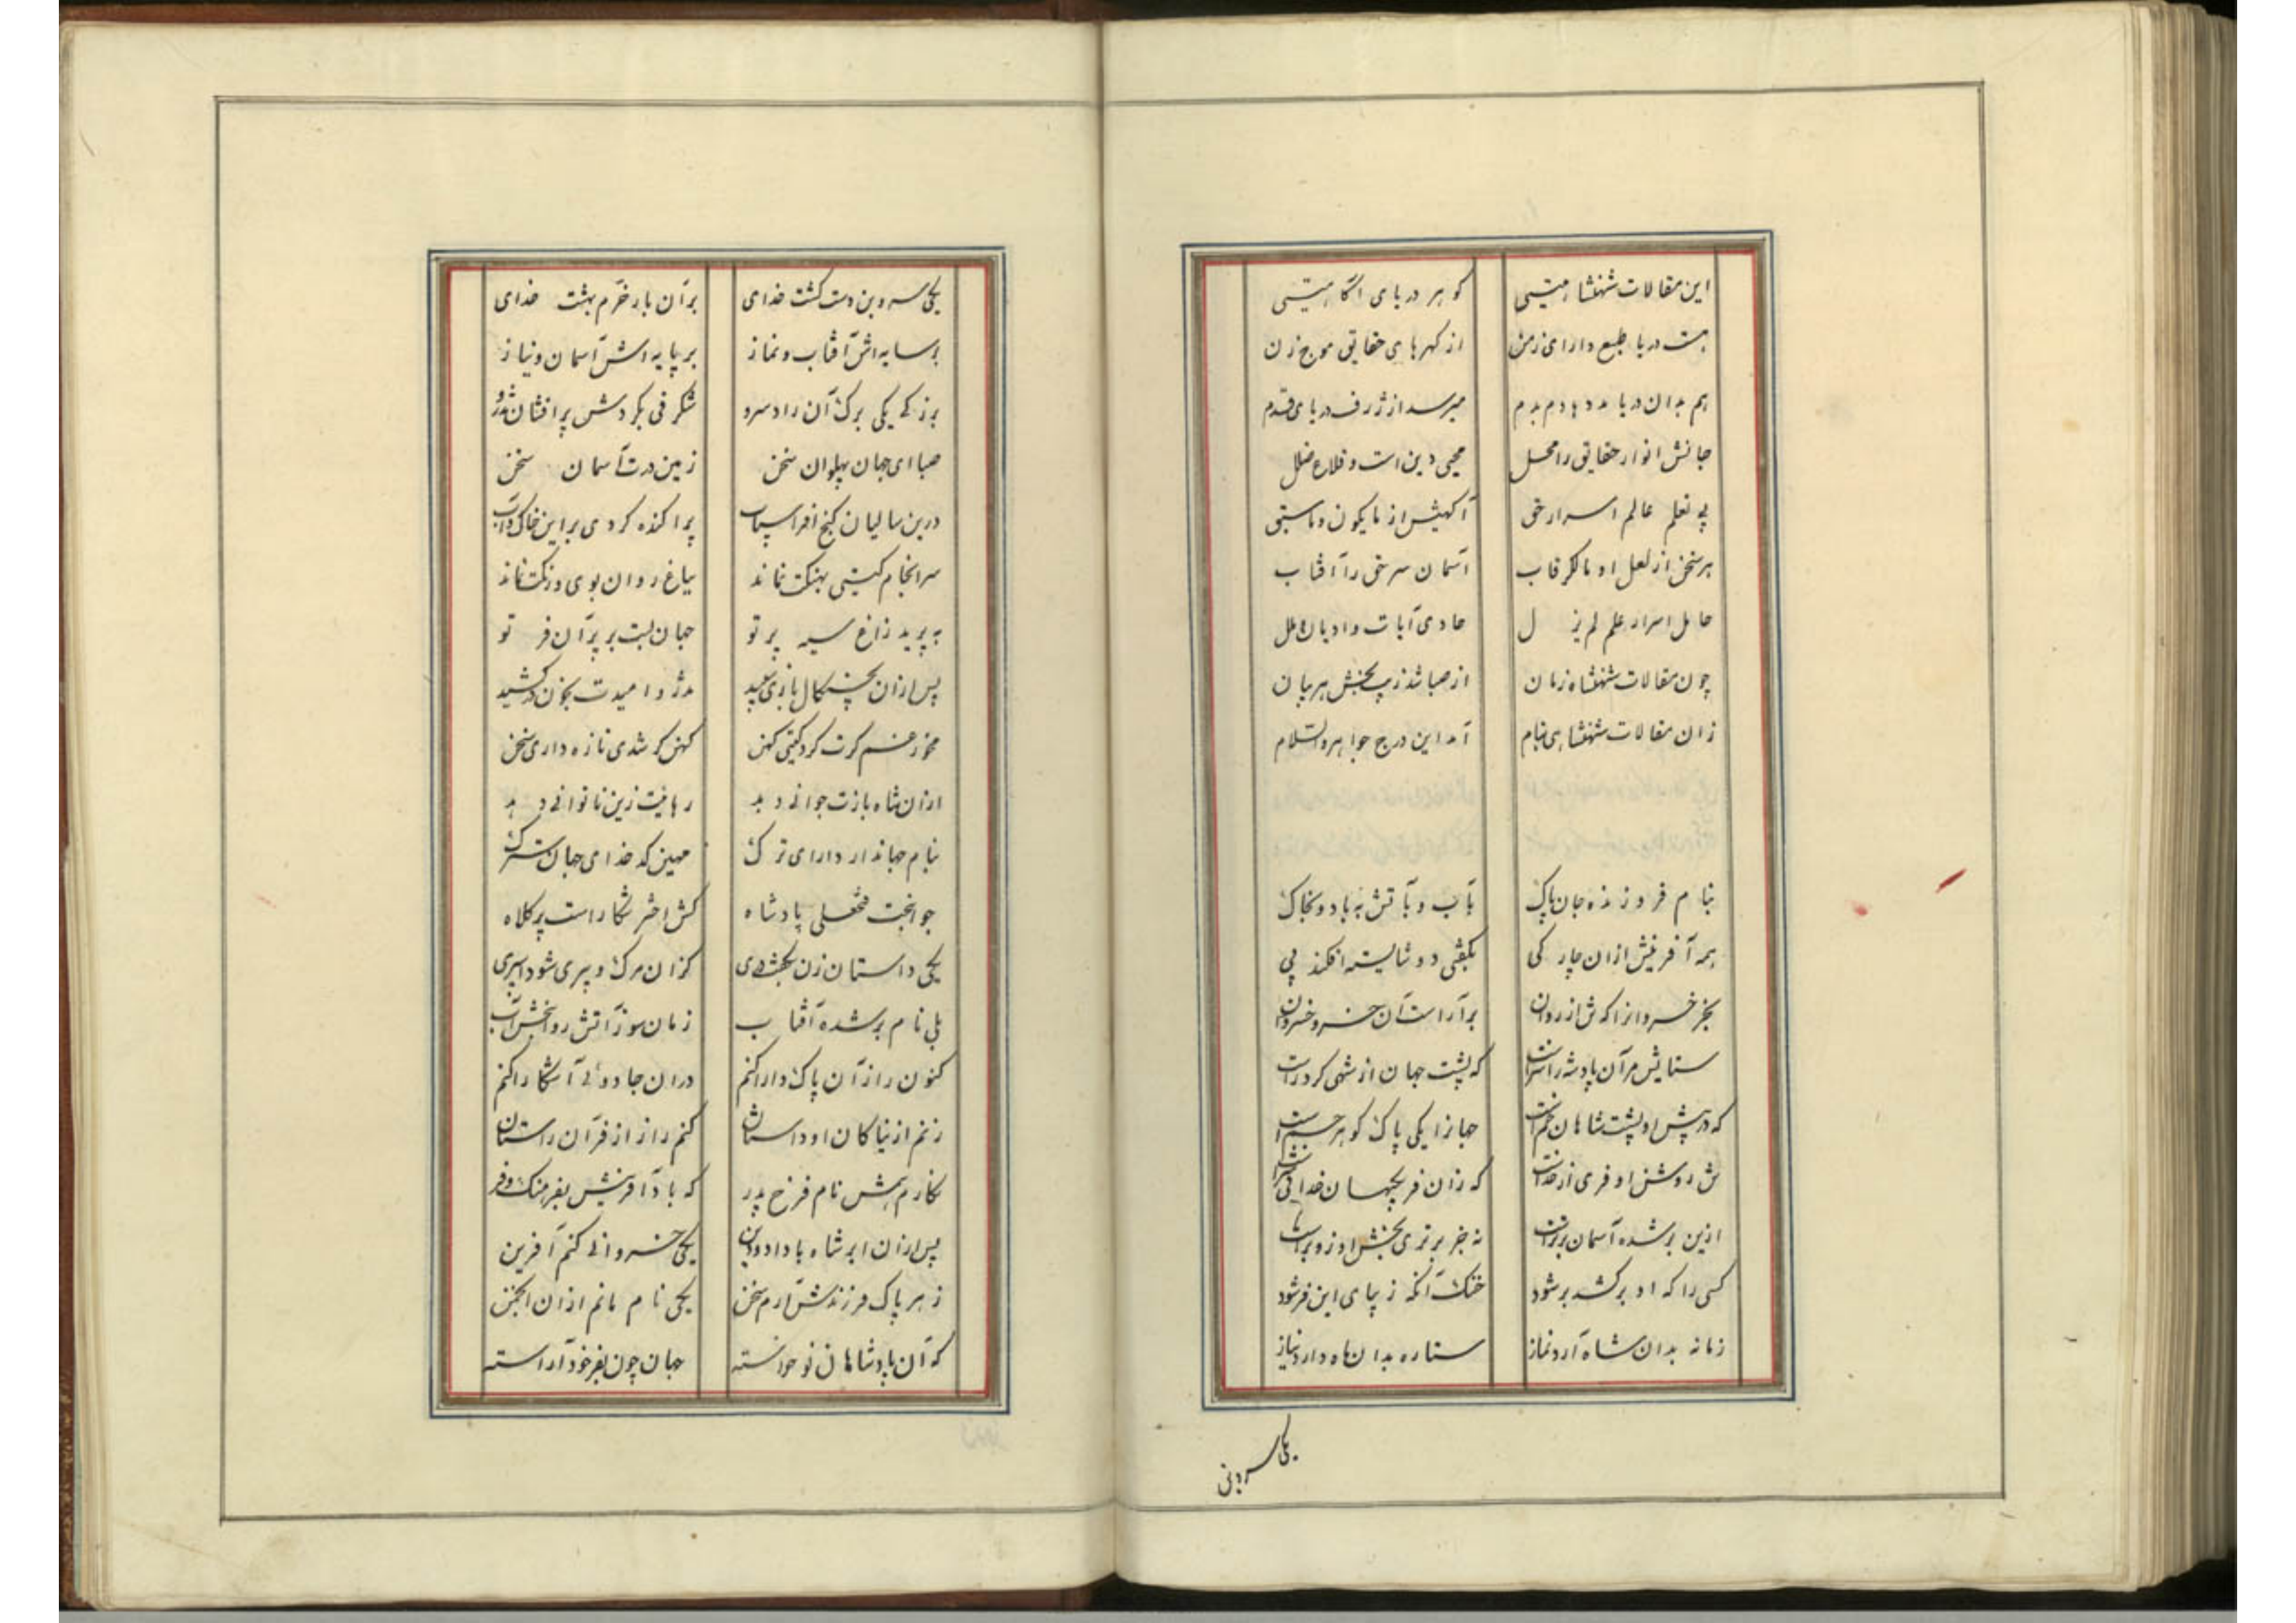 این مقالات شهنشاهیستی گوهر دریای آگاهیستی
هست دریا طبع دارای زمن از گهرهای حقایق موج زن
هم بدان دریا مددها دم بدم میرسد از ژرف دریای قدم
جانش انوار حقایق را محل محیی دین است و قلاع ضلل
بی تعلم عالم اسرار حق آگهیش از مایکون و ماسبق
هر سخن از لعل او مالک رقاب آسمان سر حق را آفتاب
حامل اسرار علم لم یزل حاوی آیات و ادیان و ملل
چون مقالات شهنشاه زمان از صبا شد زیب بخش هر بیان
زان مقالات شهنشاهی بنام آمد این درج جواهر والسلام
بنام فروزنده جان پاک بآب و بآتش بباد و بخاک
همه آفرینش ازان چار کی بگیتی دو شایسته افکند پی
بجز خسروانرا که ش از روان برآراست آن خسرو خسروان
ستایش مر آن پادشه را سزاست که پشت جهان از شهی کرد راست
که در پیش او پشت شاهان خم است جهانرا یکی پاک گوهر جم است
ش روشن او فری از خداست که زان فر بجهان خدائی سزاست
ازین برشده آسمان برترست نه جز برتری بخش او زو برست
کسی را که او برکشد برشود خنک آنکه زیبای این فر شود
زمانه بدان شاه آرد نماز ستاره بدان ماه دارد نیاز
یکی سرو بن
یکی سرو بن دست کشت خدای بر آن بار خرم بهشت خدای
بر سایه اش آفتاب و نماز بر پایه اش آسمان و نیاز
برز که یکی برک آن راد سرو شگرفی بگردش پرافشان تذرو
صبا ای جهان پهلوان سخن زمین درت آسمان سخن
درین سالیان گنج افراسیاب پراکنده کردی بر این خاک و آب
سرانجام گیتی بهنگت نماند بباغ روان بوی و رنگت نماند
بپرید زاغ سیه پر تو جهان بست بر پر آن فر تو
پس ازان بچنگال بازی سپید تذرو امیدت بخون درکشید
مخور غم گرت کرد گیتی کهن کهن گر شدی تازه داری سخن
ازان شاه بازت جوانی دهد رهائیت زین ناتوانی دهد
بنام جهاندار دارای ترک مهین کدخدای جهان سترک
جوانبخت فتحعلی پادشاه کش اختر شکار است پر کلاه
یکی داستان زن بخشندی کزان مرک و پیری شود اسپری
بلی نام برشده آفتاب زمان سوز آتش روانبخش آب
کنون راز آن پاک دارا کنم دران جادوئی آشکارا کنم
زنم از نیاکان او داستان کنم راز از فر آن راستان
نگارمش نام فرخ پدر که باد آفرینش بفرهنگ و فر
پس ازان ابر شاه با داد و دین یکی خسروانی کنم آفرین
ز هر پاک فرزندش آرم سخن یکی نام مانم ازان انجمن
که آن پادشاهان نوخواسته جهان چون بفر خود آراسته